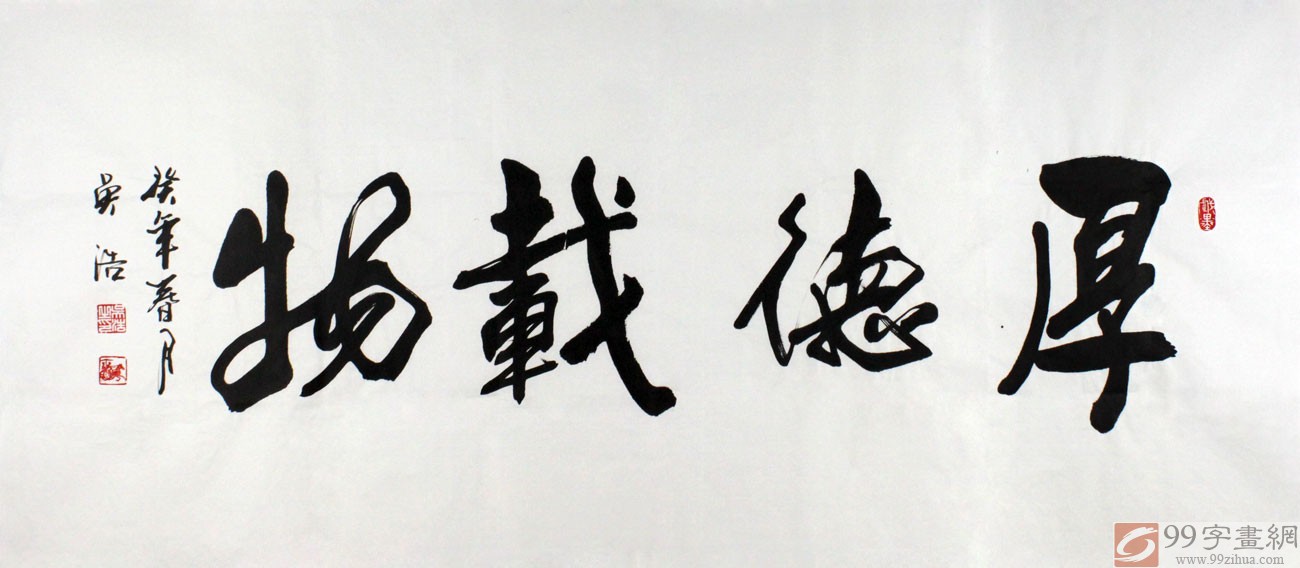 厚德載物
癸年春月
吳浩
99字畫網
www.99zihua.com